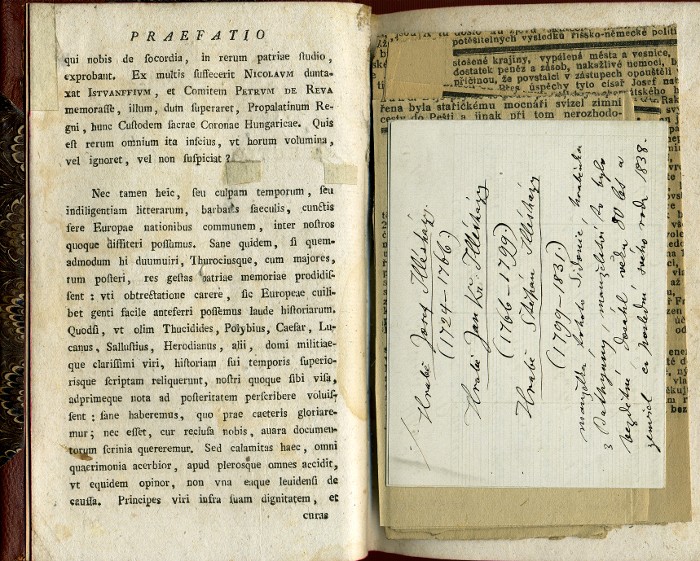 PRAEFATIO
qui nobis de socordia, in rerum patriae ſtudio,
exprobant. Ex multis ſuffecerit NICOLAVM dunta-
xat ISTVANFFIVM, et Comitem PETRVM DE REVA
memoraſſe, illum, dum ſuperaret, Propalatinum Re-
gni, hunc Cuſtodem ſacrae Coronae Hungaricae. Quis
eſt rerum omnium ita inſcius, vt horum volumina,
vel ignoret, vel non ſuſpiciat?
Nec tamen heic, ſeu culpam temporum, ſeu
indiligentiam litterarum, barbaris ſaeculis, cunctis
fere Europae nationibus communem, inter noſtros
quoque diffiteri poſſumus. Sane quidem, ſi quem-
admodum hi duumuiri, Thurociusque, cum majores,
tum poſteri, res geſtas patriae memoriae prodidiſ-
ſent: vti obtrectatione carere, ſic Europeae cuili-
bet genti facile anteferri poſſemus laude hiſtoriarum.
Quodſi, vt olim Thucidides, Polybius, Caeſar, Lu-
canus, Salluſtius, Herodianus, alii, domi militiae-
que clariſſimi viri, hiſtoriam ſui temporis ſuperio-
risque ſcriptam reliquerunt, noſtri quoque ſibi viſa,
adprimeque nota ad poſteritatem perſcribere voluiſ-
ſent: ſane haberemus, quo prae caeteris gloriare-
mur; nec eſſet, cur recluſa nobis, auara documen-
torum ſcrinia quereremur. Sed calamitas haec, omni
quaerimonia acerbior, apud plerosque omnes accidit,
vt equidem opinor, non vna eaque leuidenſi de
cauſſa. Principes viri infra ſuam dignitatem, et
curas
potěšitelných výsledků říšsko-německé politi
stošené krajiny, vypálená města a vesnice,
dostatek peněz a zásob, nakažlivé nemoci,
příčinou, že povstalci v zástupech opouštěli
úspěchy tyto císař Josef
řena byla stařičkému mocnáři svízel zimní
cesty do Pešti a jinak při tom nerozhodo-
Hrabě Josef Illésházy
(1724–1766)
Hrabě Jan Kř. Illésházy
(1766–1799)
Hrabě Štěpán Illésházy
(1799–1831)
manželka tohoto Sidonie, hraběnka
z Batthyány, manželství to bylo
bezdětné. Dosáhl věku 80 let a
zemřel co poslední svého rodu 1838.